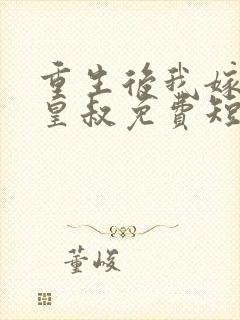 重生后我嫁
皇叔免費短
董峻